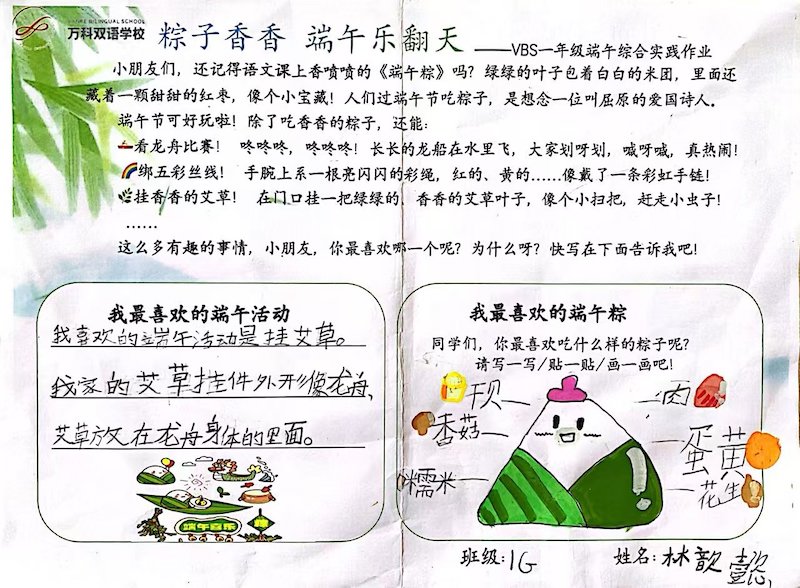 VANKE BILINGUAL SCHOOL
万科双语学校
粽子香香 端午乐翻天 ——VBS一年级端午综合实践作业
小朋友们，还记得语文课上香喷喷的《端午粽》吗？绿绿的叶子包着白白的米团，里面还
藏着一颗甜甜的红枣，像个小宝藏！人们过端午节吃粽子，是想念一位叫屈原的爱国诗人。
端午节可好玩啦！除了吃香香的粽子，还能：
看龙舟比赛！ 咚咚咚，咚咚咚！长长的龙船在水里飞，大家划呀划，喊呀喊，真热闹！
绑五彩丝线！ 手腕上系一根亮闪闪的彩绳，红的、黄的……像戴了一条彩虹手链！
挂香香的艾草！ 在门口挂一把绿绿的、香香的艾草叶子，像个小扫把，赶走小虫子！
……
这么多有趣的事情，小朋友，你最喜欢哪一个呢？为什么呀？快写在下面告诉我吧！
我最喜欢的端午活动
我喜欢的端午活动是挂艾草。
我家的艾草挂件外形像龙舟，
艾草放在龙舟身体的里面。
端午喜乐
我最喜欢的端午粽
同学们，你最喜欢吃什么样的粽子呢？
请写一写/贴一贴/画一画吧！
干贝
肉
香菇
蛋黄
糯米
花生
班级：1G
姓名：林歆